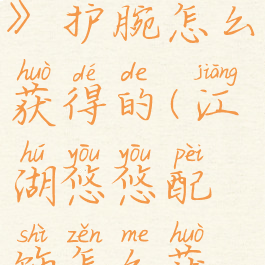 》护腕怎么
huò dé de jiāng
获得的(江
hú yōu yōu pèi
湖悠悠配
shì zěn me huò
饰怎么获